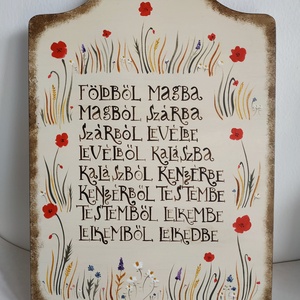 FÖLDBŐL MAGBA
MAGBÓL SZÁRBA
SZÁRBÓL LEVÉLBE
LEVÉLBŐL KALÁSZBA
KALÁSZBÓL KENYÉRBE
KENYÉRBŐL TESTEMBE
TESTEMBŐL LELKEMBE
LELKEMBŐL LELKEDBE